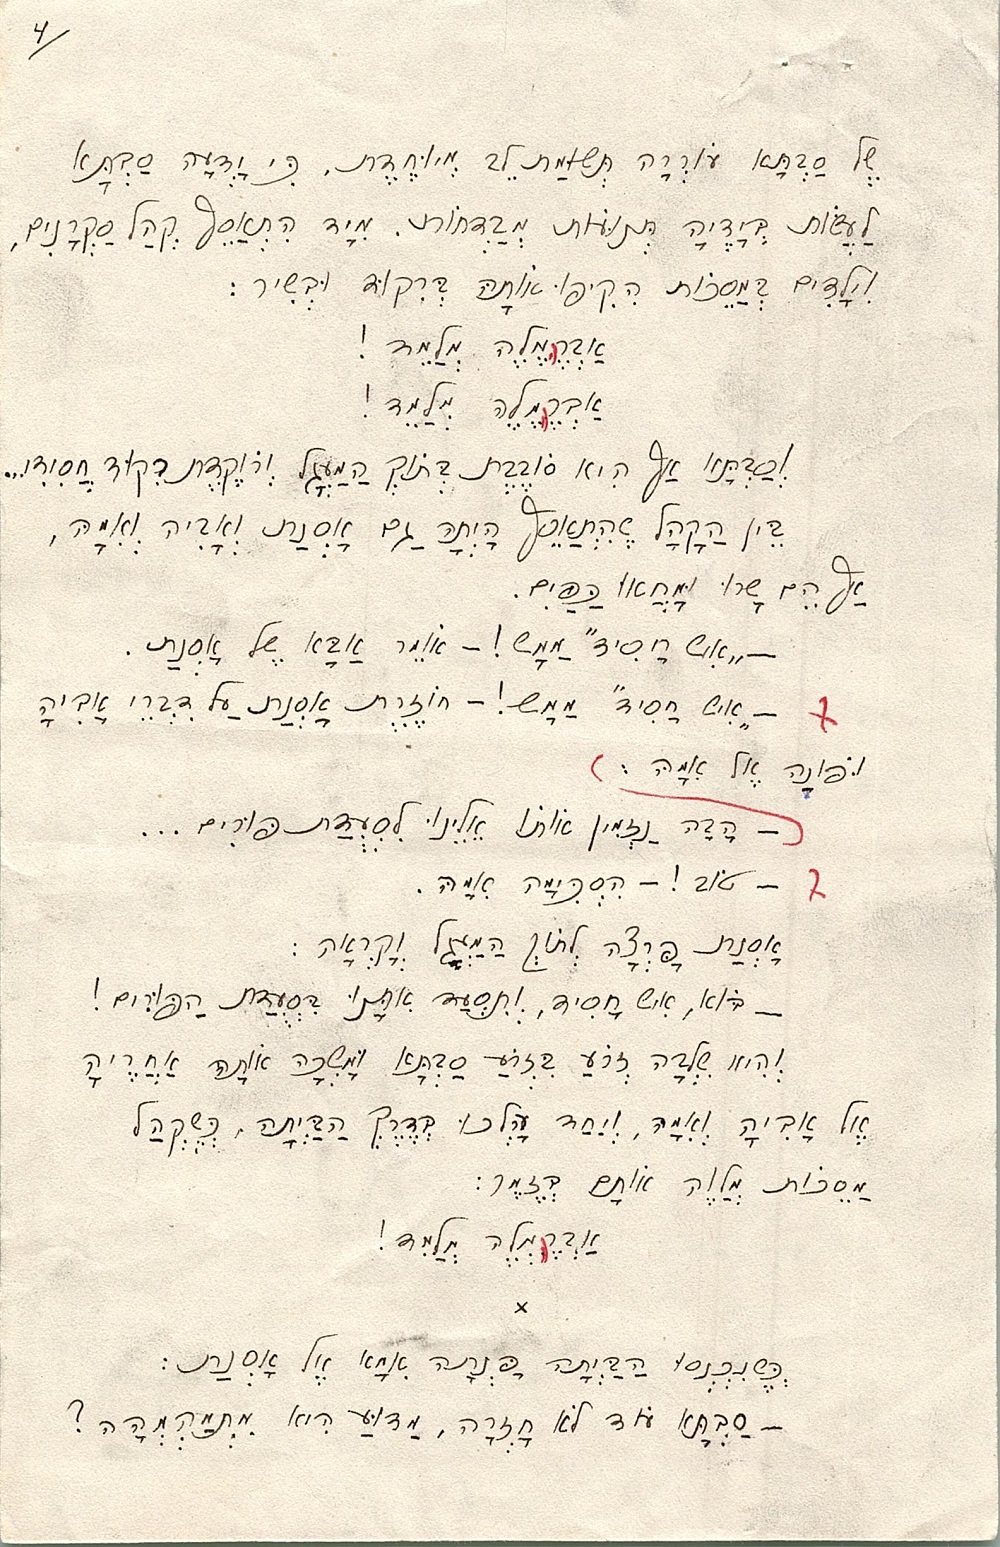 4/
שֶׁל סַבְתָּא עוֹרְרָה תְּשׂוּמַת לֵב מְיוּחֶדֶת, כִּי יָדְעָה סַבְתָּא
לַעֲשׂוֹת בְּיָדֶיהָ תְּנוּעוֹת מְבַדְּחוֹת. מִיָד הִתְאַסֵף קְהַל סַקְרָנִים,
וִילָדִים בְּמַסֵכוֹת הִקִיפוּ אוֹתָהּ בְּרִקוּד וּבְשִׁיר:
אַבְרֶמֶלֶה מְלַמֵד!
אַבְרֶמֶלֶה מְלַמֵד!
וְסַבְתָּא אַף הִיא סוֹבֶבֶת בְּתוֹךְ הַמַעְגָל וְרוֹקֶדֶת רִקוּד חֲסִידִי...
בֵּין הַקָהָל שֶׁהִתְאַסֵף הָיְתָה גַם אָסְנַת וְאָבִיהָ וְאִמָהּ,
אַף הֵם שָׁרוּ וּמָחֲאוּ כַּפַּיִם.
– „אִישׁ חָסִיד” מַמָשׁ! – אוֹמֵר אַבָּא שֶׁל אָסְנַת.
– „אִישׁ חָסִיד” מַמָשׁ! – חוֹזֶרֶת אָסְנַת עַל דִבְרֵי אָבִיהָ
וּפוֹנָה אֶל אִמָהּ:
– הָבָה נַזְמִין אוֹתוֹ אֵלֵינוּ לִסְעֻדַת פּוּרִים...
– טוֹב! – הִסְכִּימָה אִמָהּ.
אָסְנַת פָּרְצָה לְתוֹךְ הַמַעְגָל וְקָרְאָה:
– בּוֹא, אִישׁ חָסִיד, וְתִסְעַד אִתָּנוּ בִּסְעֻדַת הַפּוּרִים!
וְהִיא שִׁלְבָה זְרוֹעַ בִּזְרוֹעַ סַבְתָּא וּמָשְׁכָה אוֹתָהּ אַחֲרֶיהָ
אֶל אָבִיהָ וְאִמָהּ, וְיַחַד הָלְכוּ בְּדֶרֶךְ הַבַּיְתָה, כְּשֶׁקְהַל
מַסֵכוֹת מְלַוֶה אוֹתָם בְּזֶמֶר:
אַבְרֶמֶלֶה מְלַמֵד!
x
כְּשֶׁנִכְנְסוּ הַבַּיְתָה פָּנְתָה אִמָא אֶל אָסְנַת:
– סַבְתָּא עוֹד לֹא חָזְרָה, מַדוּעַ הִיא מִתְמַהְמְהָה?